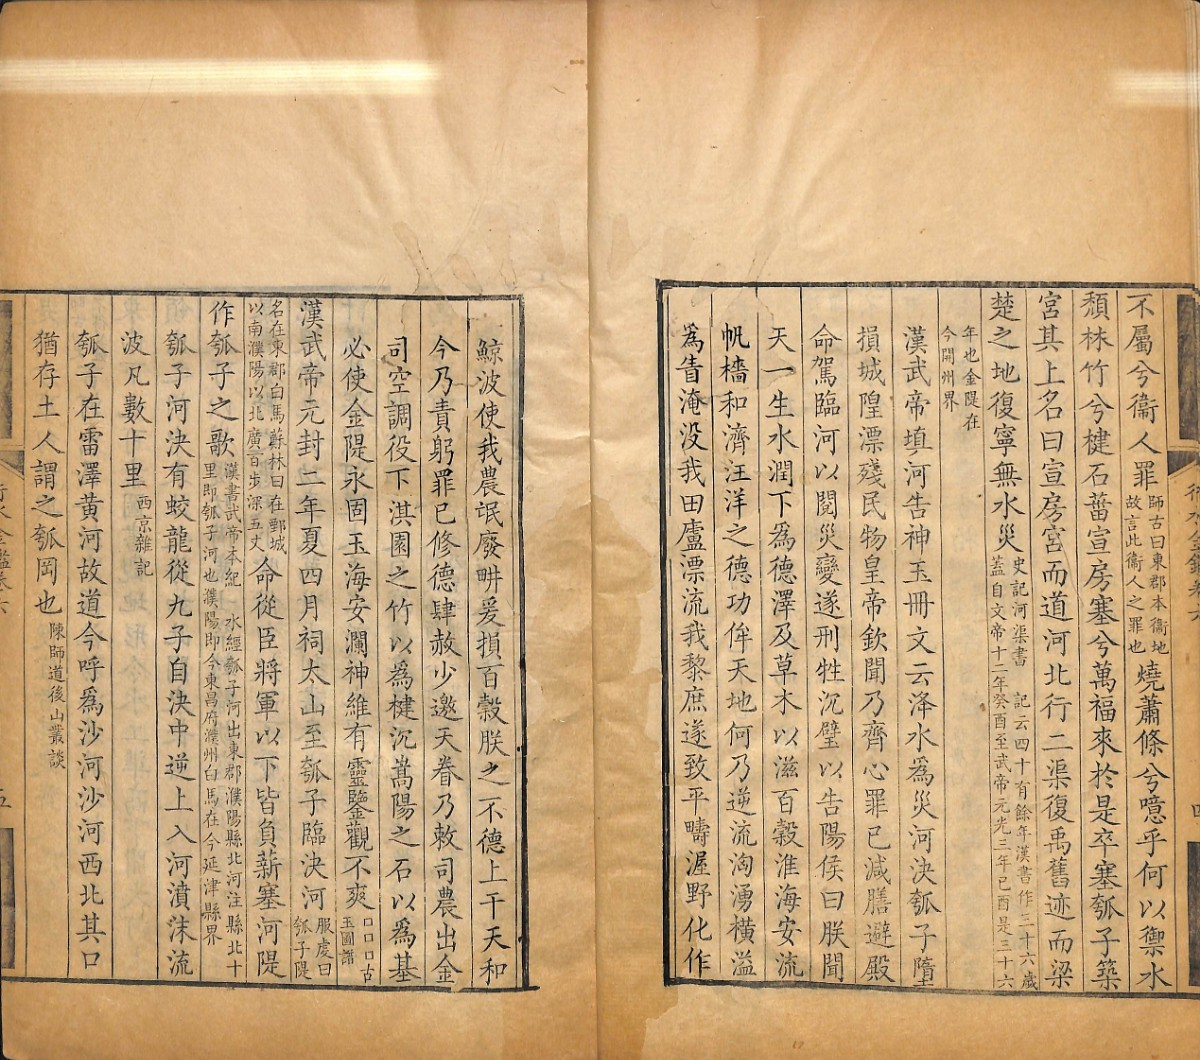 不屬兮衞人罪師古曰東郡本衞地故言此衞人之罪也燒蕭條兮噫乎何以禦水
頹林竹兮楗石菑宣房塞兮萬福來於是卒塞瓠子築
宮其上名曰宣房宮而道河北行二渠復禹舊迹而梁
楚之地復寧無水災史記河渠書 記云四十有餘年漢書作三十六歲蓋自文帝十二年癸酉至武帝元光三年己酉是三十六
年也金隄在今開州界
漢武帝塡河告神玉冊文云洚水爲災河決瓠子隳
損城隍漂殘民物皇帝欽聞乃齊心罪已減膳避殿
命駕臨河以閱災變遂刑牲沉璧以告陽侯曰朕聞
天一生水潤下爲德澤及草木以滋百穀淮海安流
帆檣和濟汪洋之德功侔天地何乃逆流洶湧橫溢
爲眚淹没我田廬漂流我黎庶遂致平疇渥野化作
鯨波使我農氓廢畊爰損百穀朕之不德上干天和
今乃責躬罪已修德肆赦少邀天眷乃敕司農出金
司空調役下淇園之竹以爲楗沉嵩陽之石以爲基
必使金隄永固玉海安瀾神維有靈鑒觀不爽□□□古玉圖譜
漢武帝元封二年夏四月祠太山至瓠子臨決河服虔曰瓠子隄
名在東郡白馬蘇林曰在鄄城以南濮陽以北廣百步深五丈命從臣將軍以下皆負薪塞河隄
作瓠子之歌漢書武帝本紀 水經瓠子河出東郡濮陽縣北河注縣北十里即瓠子河也濮陽即今東昌府濮州白馬在今延津縣界
瓠子河決有蛟龍從九子自決中逆上入河濆沫流
波凡數十里西京雜記
瓠子在雷澤黃河故道今呼爲沙河沙河西北其口
猶存土人謂之瓠岡也陳師道後山叢談
五